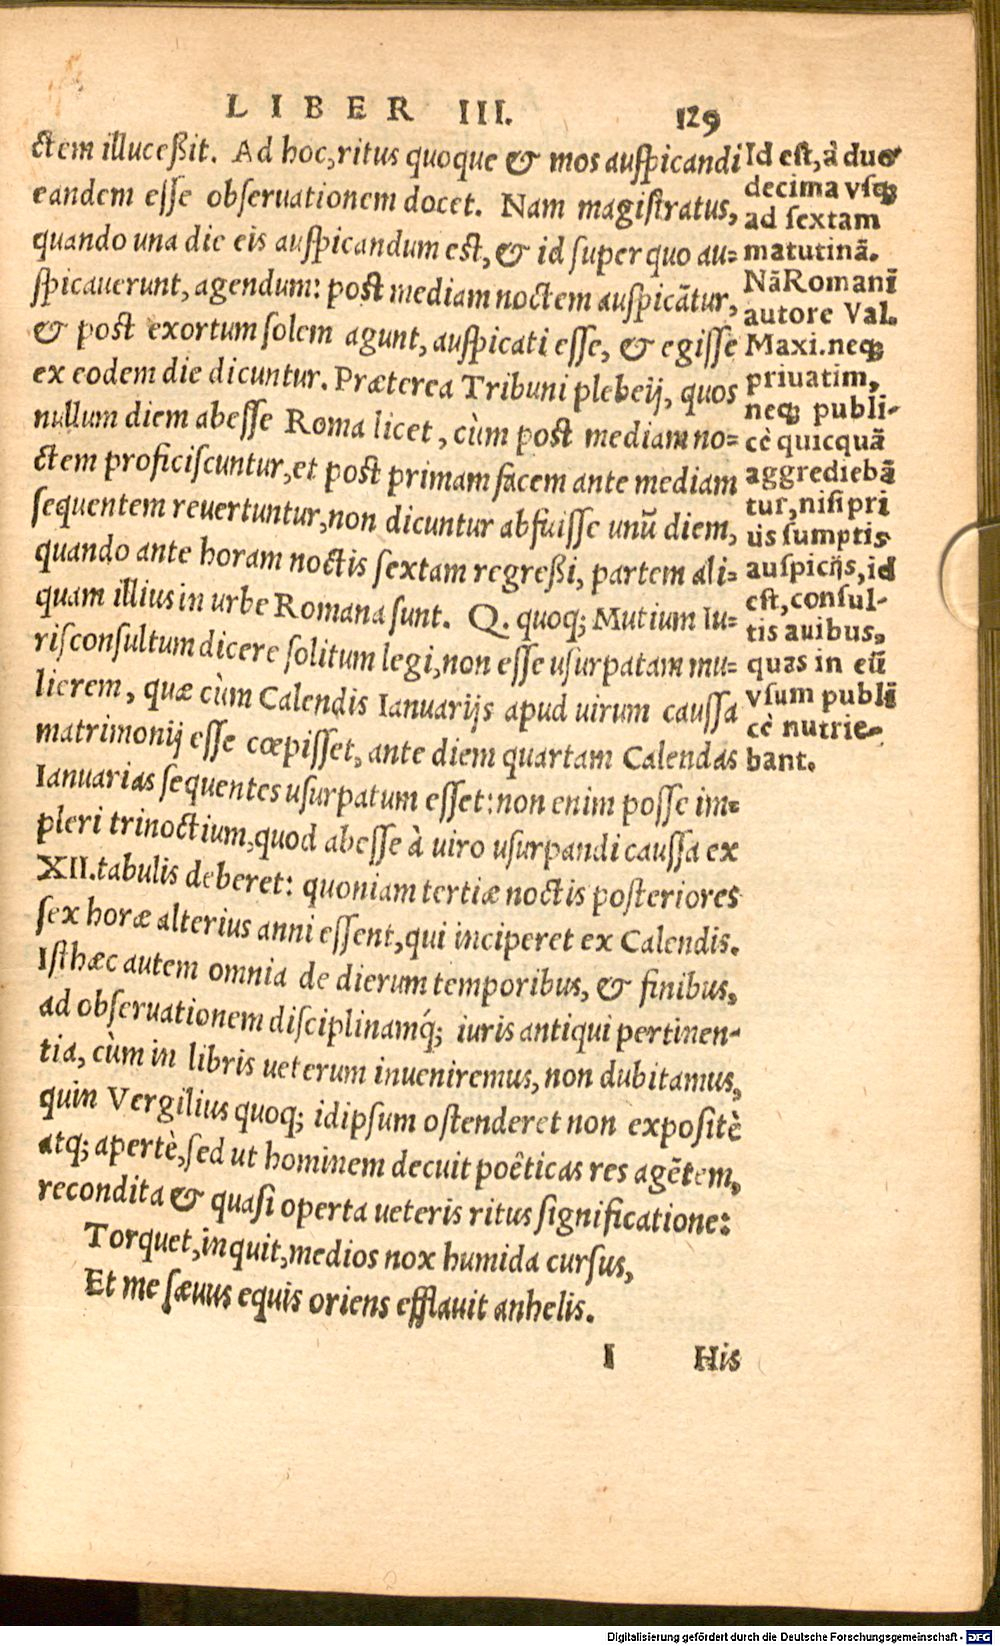 LIBER III. 129
ctem illuceßit. Ad hoc, ritus quoque & mos auſpicandi
eandem eſſe obſeruationem docet. Nam magiſtratus,
quando una die eis auſpicandum eſt, & id ſuper quo au=
ſpicauerunt, agendum: poſt mediam noctem auſpicātur,
& poſt exortum ſolem agunt, auſpicati eſſe, & egiſſe
ex eodem die dicuntur. Præterea Tribuni plebeij, quos
nullum diem abeſſe Roma licet, cùm poſt mediam no=
ctem proficiſcuntur, et poſt primam facem ante mediam
ſequentem reuertuntur, non dicuntur abfuiſſe unū diem,
quando ante horam noctis ſextam regreßi, partem ali=
quam illius in urbe Romana ſunt. Q. quoq; Mutium Iu=
riſconſultum dicere ſolitum legi, non eſſe uſurpatam mu=
lierem, quæ cùm Calendis Ianuarijs apud uirum cauſſa
matrimonij eſſe cœpiſſet, ante diem quartam Calendas
Ianuarias ſequentes uſurpatum eſſet: non enim poſſe im=
pleri trinoctium, quod abeſſe à uiro uſurpandi cauſſa ex
XII. tabulis deberet: quoniam tertiæ noctis poſteriores
ſex horæ alterius anni eſſent, qui inciperet ex Calendis.
Iſthæc autem omnia de dierum temporibus, & finibus,
ad obſeruationem diſciplinamq́; iuris antiqui pertinen-
tia, cùm in libris ueterum inueniremus, non dubitamus,
quin Vergilius quoq; idipſum oſtenderet non expoſitè
atq; apertè, ſed ut hominem decuit poêticas res agētem,
recondita & quaſi operta ueteris ritus ſignificatione:
Torquet, inquit, medios nox humida curſus,
Et me ſæuus equis oriens efflauit anhelis.
I His
Id eſt, à duo
decima vſq;
ad ſextam
matutinã.
Nã Romani
autore Val.
Maxi. neq;
priuatim,
neq; publi-
cè quicquã
aggrediebã
tur, niſi pri
us ſumptis
auſpicijs, id
eſt, conſul-
tis auibus,
quas in eũ
vſum publi
cè nutrie-
bant.
Digitalisierung gefördert durch die Deutsche Forschungsgemeinschaft - DFG